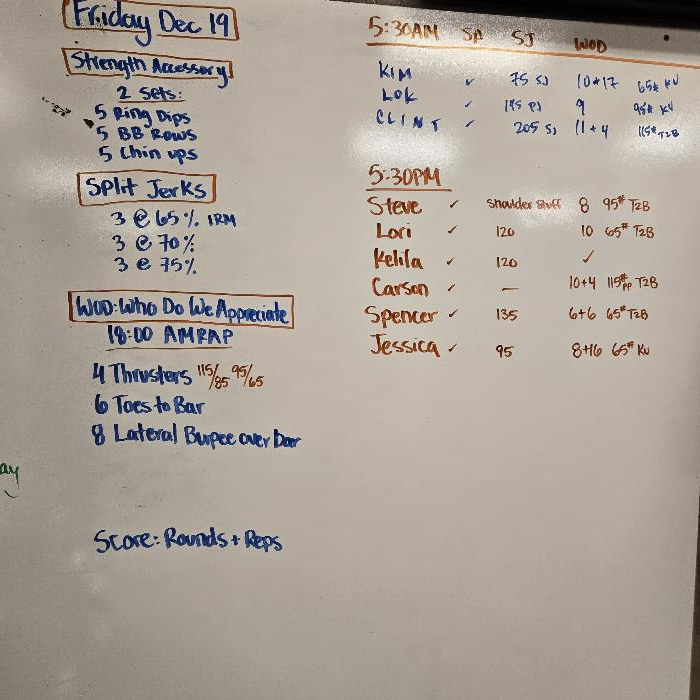 Friday Dec 19
Strength Accessory
2 Sets:
5 Ring Dips
5 BB Rows
5 Chin ups
Split Jerks
3 @ 65% 1RM
3 @ 70%
3 @ 75%
WOD: Who Do We Appreciate
18:00 AMRAP
4 Thrusters 115/85 95/65
6 Toes to Bar
8 Lateral Burpee over bar
Score: Rounds + Reps
5:30AM SA SJ WOD
KIM ✓ 75 SJ 10+17 65# KU
LOK ✓ 9 95# KU
CLINT ✓ 205 SJ 11+4 115# T2B
5:30PM
Steve ✓ Shoulder Stuff 8 95# T2B
Lori ✓ 120 10 65# T2B
Kelila ✓ 120 ✓
Carson ✓ — 10+4 115# pp T2B
Spencer ✓ 135 6+6 65# T2B
Jessica ✓ 95 8+16 65# KU
ay